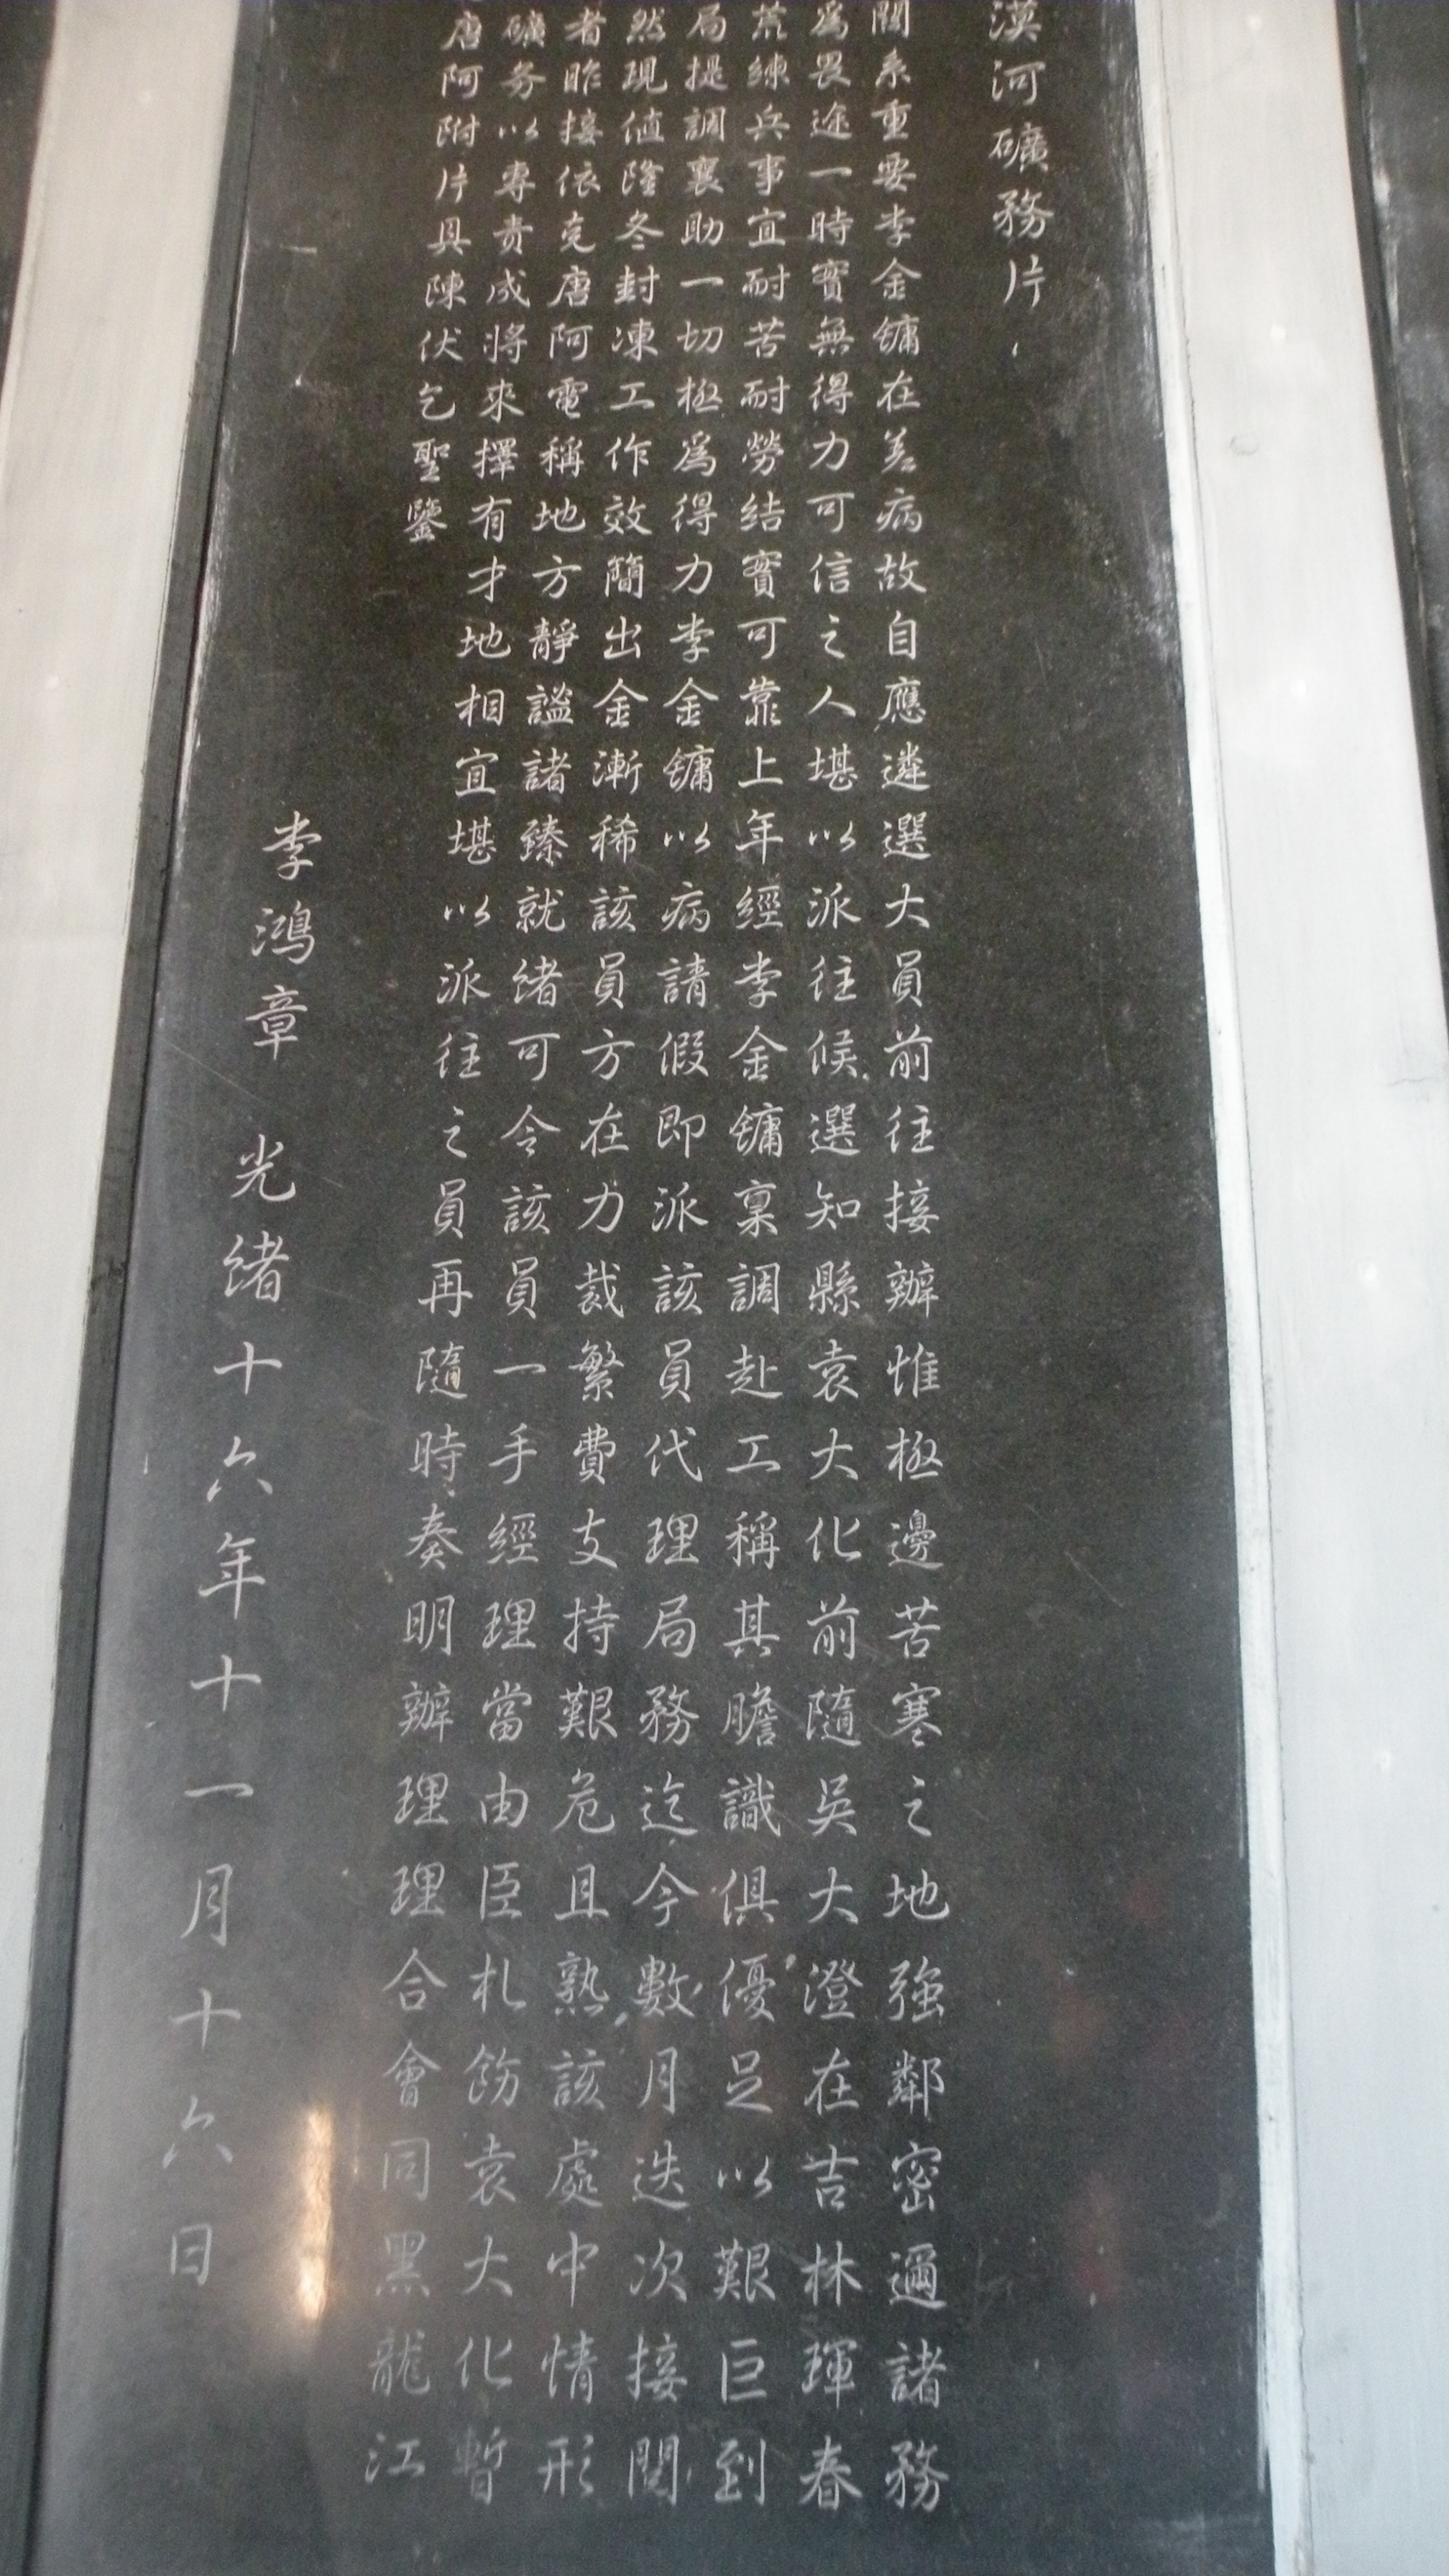 漠河礦務片
關系重要李金鏞在差病故自應遴選大員前往接辦惟極邊苦寒之地強鄰密邇諸務
爲畏途一時實無得力可信之人堪以派往候選知縣袁大化前隨吳大澄在吉林琿春
荒練兵事宜耐苦耐勞結實可靠上年經李金鏞稟調赴工稱其膽識俱優足以艱巨到
局提調襄助一切極爲得力李金鏞以病請假即派該員代理局務迄今數月迭次接閱
然現値隆冬封凍工作效簡出金漸稀該員方在力裁繁費支持艱危且熟該處中情形
者昨接依克唐阿電稱地方靜謐諸臻就緒可令該員一手經理當由臣札飭袁大化暫
礦务以專责成將來擇有才地相宜堪以派往之員再隨時奏明辦理理合會同黑龍江
唐阿附片具陳伏乞聖鑒
李鴻章 光緒十六年十一月十六日